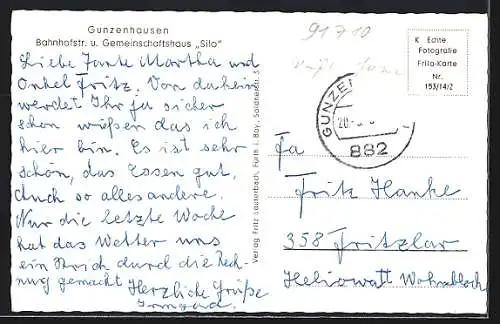 Gunzenhausen
Bahnhofstr. u. Gemeinschaftshaus „Silo"
91710
K Echte
Fotografie
Frila-Karte
Nr.
153/14/2
GUNZEN
20.
882
Liebe Tante Martha und
Onkel Fritz. Von daheim
werdet Ihr ja sicher
schon wüßen das ich
hier bin. Es ist sehr
schön, das Essen gut,
Auch so alles andere.
Nur die letzte Woche
hat das Wetter uns
ein Strich durch die Rech-
nung gemacht Herzliche Grüße
Irmgard.
Verlag Fritz Lauterbach, Fürth i. Bay., Soldnerstr. 5
Fa
Fritz Hanke
358 Fritzlar
Heliowatt Wohnblock